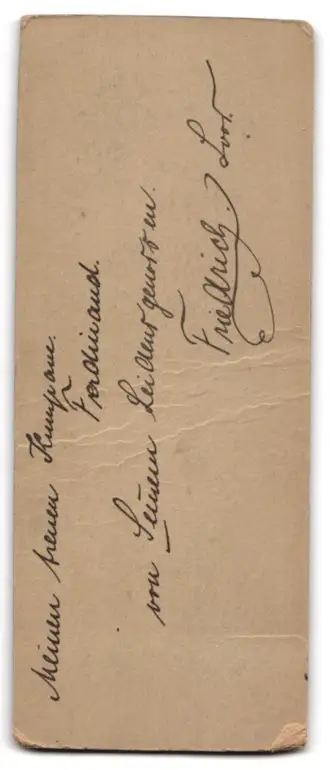 Meinen treuen Kumpane.
Ferdinand.
von Seinem Leidensgenossen.
Friedrich Loos.